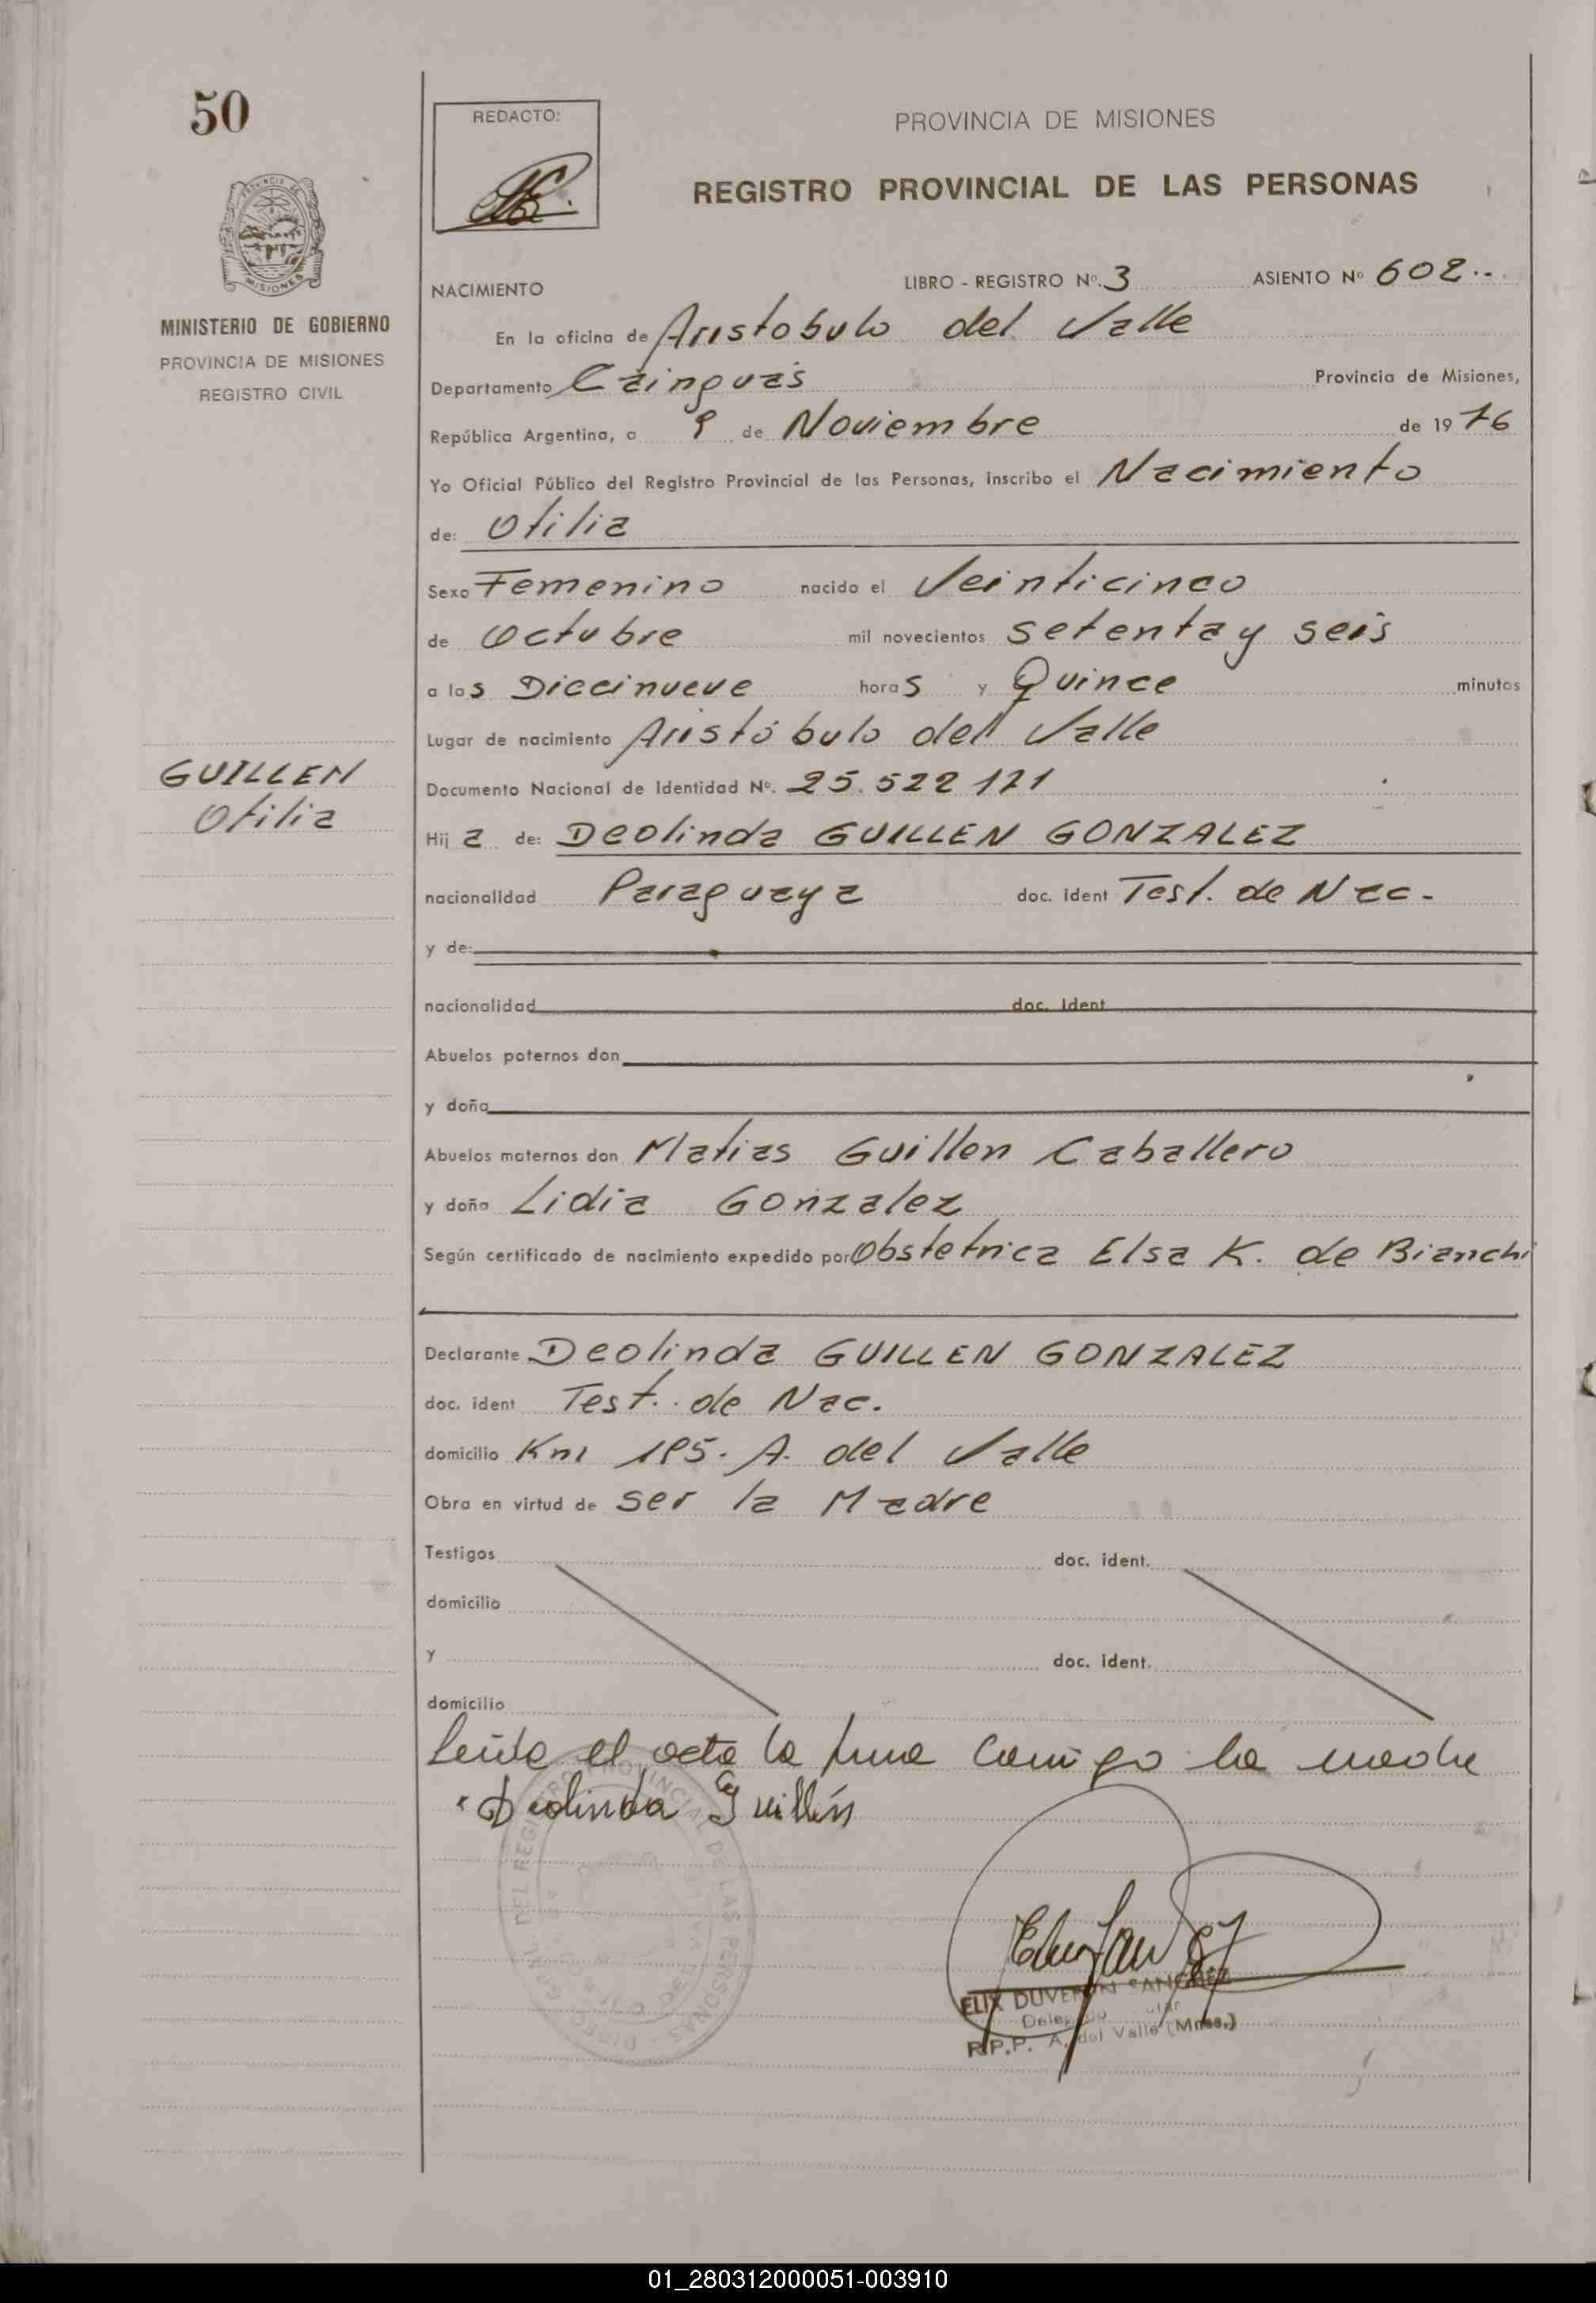 50
REDACTO:
PROVINCIA DE MISIONES
REGISTRO PROVINCIAL DE LAS PERSONAS
MISIONES
MINISTERIO DE GOBIERNO
PROVINCIA DE MISIONES
REGISTRO CIVIL
NACIMIENTO LIBRO - REGISTRO Nº. 3 ASIENTO Nº 602
En la oficina de Aristobulo del Valle
Departamento Cainguás Provincia de Misiones,
República Argentina, a 9 de Noviembre de 1976
Yo Oficial Público del Registro Provincial de las Personas, inscribo el Nacimiento
de: Otilia
Sexo Femenino nacido el Veinticinco
de Octubre mil novecientos setenta y seis
a las Diecinueve horas y Quince minutos
Lugar de nacimiento Aristóbulo del Valle
GUILLEN
Otilia
Documento Nacional de Identidad Nº. 25.522 171
Hija de: Deolinda GUILLEN GONZALEZ
nacionalidad Paraguaya doc. ident Test. de Nac.-
y de:
nacionalidad doc. ident
Abuelos paternos don
y doña
Abuelos maternos don Matias Guillen Caballero
y doña Lidia Gonzalez
Según certificado de nacimiento expedido por Obstetrica Elsa K. de Bianchi
Declarante Deolinda GUILLEN GONZALEZ
doc. ident Test. de Nac.
domicilio Km 195. A. del Valle
Obra en virtud de ser la Madre
Testigos doc. ident.
domicilio
y doc. ident.
domicilio
Leída el acta la firma conmigo la madre
Deolinda Guillén
ELIX DUVERON SANCHEZ
R.P.P. A. del Valle (Mnes.)
01_280312000051-003910